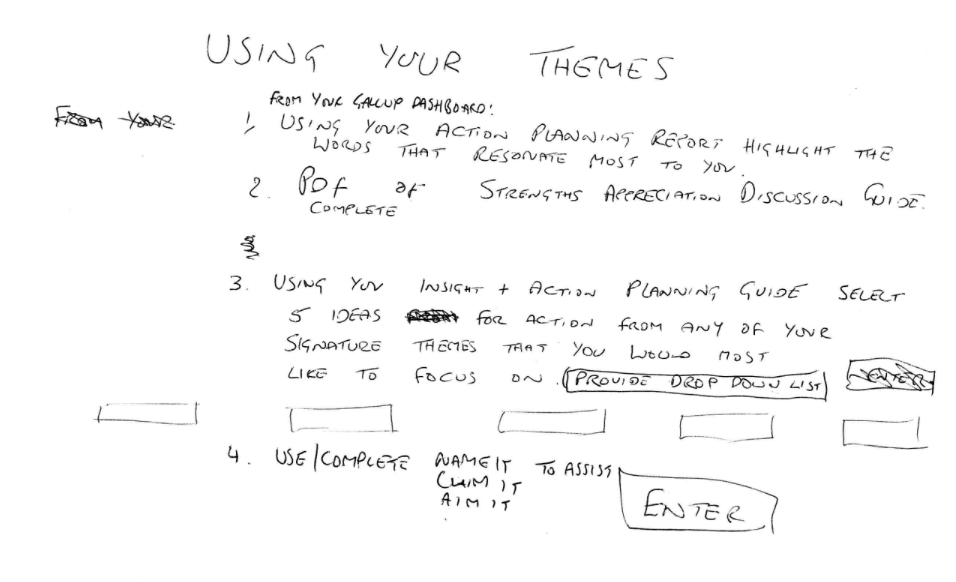 USING YOUR THEMES
FROM YOUR GALLUP DASHBOARD:
FROM YOUR
1, USING YOUR ACTION PLANNING REPORT HIGHLIGHT THE
WORDS THAT RESONATE MOST TO YOU.
2. PDF OF STRENGTHS APPRECIATION DISCUSSION GUIDE.
COMPLETE
3. USING YOUR INSIGHT + ACTION PLANNING GUIDE SELECT
5 IDEAS FOR ACTION FROM ANY OF YOUR
SIGNATURE THEMES THAT YOU WOULD MOST
LIKE TO FOCUS ON. (PROVIDE DROP DOWN LIST) ENTER
4. USE/COMPLETE NAME IT TO ASSIST
CLAIM IT
AIM IT
ENTER